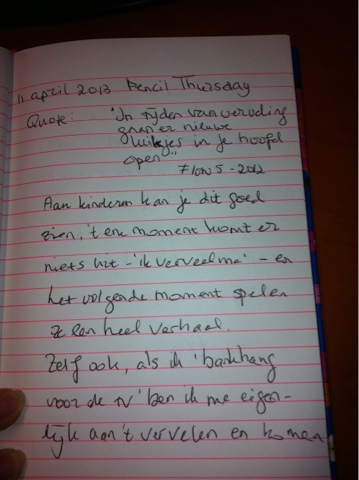 11 april 2013 Pencil Thursday
Quote: "In tijden van verveling
gaan er nieuwe
luikjes in je hoofd
open"
Flow 5-2012
Aan kinderen kan je dit goed
zien, 't ene moment komt er
niets uit - 'ik verveel me' - en
het volgende moment spelen
ze een heel verhaal.
Zelf ook, als ik 'bankhang
voor de tv' ben ik me eigen-
lijk aan 't vervelen en komen